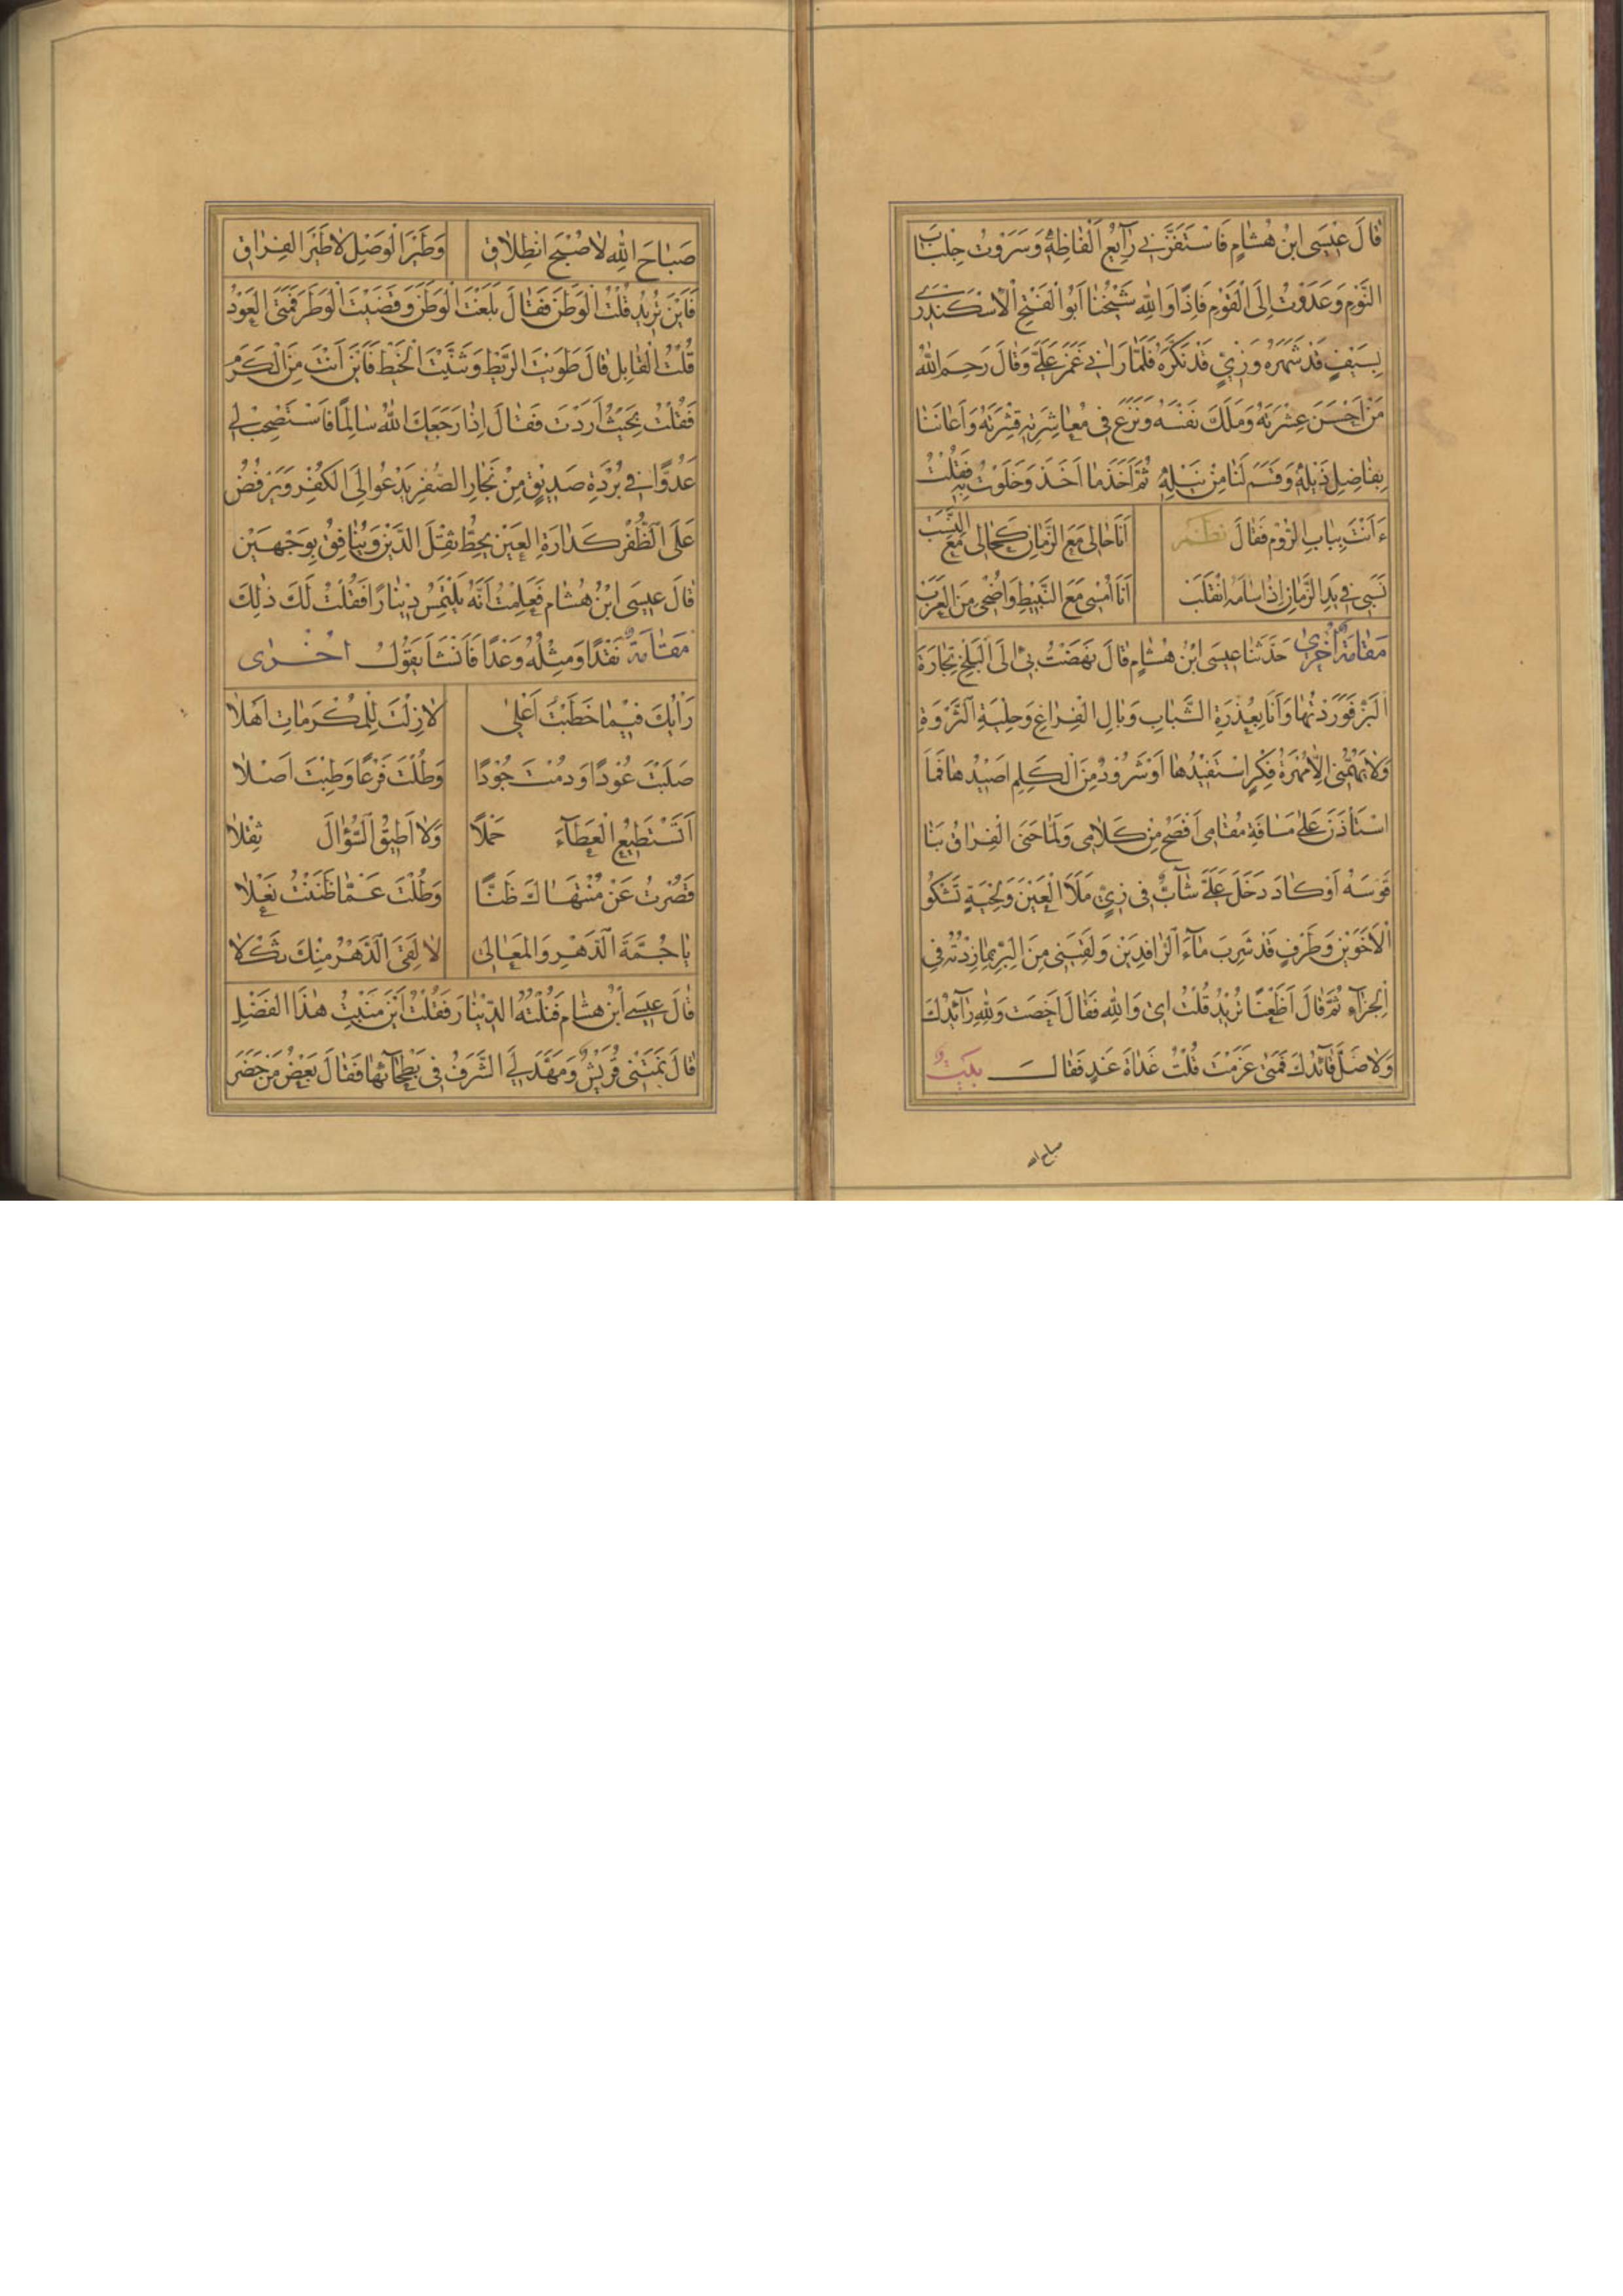 قَالَ عِيسَى ابْنُ هُشَامٍ فَاسْتَفَزَّنِي رَآئِعُ اَلْفَاظِهِ وَسَرَوْتُ جِلْبَابَ
النَّوْمِ وَعَدَوْتُ اِلَى الْقَوْمِ فَاِذًا وَاللهِ شَيْخُنَا اَبُوالْفَتْحِ الْاِسْكَنْدَرِي
بِسَيْفٍ قَدْ شَهَرَهُ وَزِيٍّ قَدْ نَكَّرَهُ فَلَمَّا رَاٰنِي غَمَزَ عَلَيَّ وَقَالَ رَحِمَ اللهُ
مَنْ اَحْسَنَ عِشْرَتَهُ وَمَلَكَ نَفْسَهُ وَنَزَعَ فِي مُعَاشِرَتِهِ قِشْرَتَهُ وَاَعَانَنَا
بِفَاضِلِ ذَيْلِهِ وَقَسَمَ لَنَا مِنْ نَيْلِهِ ثُمَّ اَخَذَ مَا اَخَذَ وَخَلَوْتُ بِهِ فَقُلْتُ
ءَاَنْتَ بِبَابِ الرُّوْمِ فَقَالَ نظم اَنَا حَالِي مَعَ الزَّمَانِ كَحَالِي مَعَ النَّسَبْ
نَسَبِي فِي يَدِ الزَّمَانِ اِذَا سَامَهُ انْقَلَبْ اَنَا اُمْسِي مَعَ النَّبِيْطِ وَاُضْحِي مِنَ الْعَرَبْ
مَقَامَةٌ اُخْرٰى حَدَّثَنَا عِيسَى ابْنُ هُشَامٍ قَالَ نَهَضَتْ بِيْ اِلَى الْبَلْخِ تِجَارَةُ
الْبَزِّ فَوَرَدْتُهَا وَاَنَا بِعُذْرَةِ الشَّبَابِ وَبَالِ الْفِرَاغِ وَحِلْيَةِ الثَّرْوَةِ
وَلَا يُهِمُّنِي اِلَّا مُهْرَةُ فِكْرٍ اَسْتَفِيْدُهَا اَوْ شَرُوْدٌ مِنَ الْكَلِمِ اَصِيْدُهَا فَمَا
اسْتَاْذَنَ عَلٰى مَسَافَةِ مُقَامِي اَفْصَحُ مِنْ كَلَامِي وَلَمَّا حَنَى الْفِرَاقُ بِنَا
قَوْسَهُ اَوْ كَادَ دَخَلَ عَلَيَّ شَآبٌّ فِي زِيٍّ مَلَأَ الْعَيْنَ وَلِحْيَةٍ تَشْكُو
الْاَخْوَيْنِ وَطَرْفٍ قَدْ شَرِبَ مَآءَ الرَّافِدَيْنِ وَلَقِيَنِي مِنَ الْبِرِّ بِمَا زِدْتُهُ فِي
الْجَزَآءِ ثُمَّ قَالَ اَظَعْنًا تُرِيْدُ قُلْتُ اِي وَاللهِ فَقَالَ اَخْصَبَ وَاللهِ رَآئِدُكَ
وَلَا ضَلَّ قَآئِدُكَ فَمَتٰى عَزَمْتَ قُلْتُ غَدَاةَ غَدٍ فَقَالَ بيت
صباح الله
صَبَاحَ اللهِ لَا صُبْحَ انْطِلَاقِ وَطَيْرَ الْوَصْلِ لَا طَيْرَ الْفِرَاقِ
فَاَيْنَ تُرِيْدُ قُلْتُ الْوَطَنَ فَقَالَ بَلَغْتَ الْوَطَنَ وَقَضَيْتَ الْوَطَرَ فَمَتَى الْعَوْدُ
قُلْتُ الْقَابِلَ قَالَ طَوَيْتَ الرَّيْطَ وَثَنَيْتَ الْخَيْطَ فَاَيْنَ اَنْتَ مِنَ الْكَرَمِ
فَقُلْتُ بِحَيْثُ اَرَدْتَ فَقَالَ اِذَا رَجَعَكَ اللهُ سَالِمًا فَاسْتَصْحِبْ لِي
عَدُوًّا فِي بُرْدَةِ صَدِيْقٍ مِنْ نِجَارِ الصُّفْرِ يَدْعُوا اِلَى الْكُفْرِ وَيَرْفُضُ
عَلَى الظُّفُرِ كَدَارَةِ الْعَيْنِ يَحُطُّ ثِقْلَ الدَّيْنِ وَيُنَافِقُ بِوَجْهَيْنِ
قَالَ عِيسَى ابْنُ هُشَامٍ فَعَلِمْتُ اَنَّهُ يَلْتَمِسُ دِيْنَارًا فَقُلْتُ لَكَ ذٰلِكَ
مَقَامَةٌ نَقْدًا وَمِثْلُهُ وَعْدًا فَاَنْشَاَ يَقُوْلُ اخْرٰى
رَاْيُكَ فِيْمَا خَطَبْتَ اَعْلٰى لَا زِلْتَ لِلْمَكْرَمَاتِ اَهْلَا
صَلَبْتَ عُوْدًا وَدُمْتَ جُوْدًا وَطُلْتَ فَرْعًا وَطِبْتَ اَصْلَا
اَتَسْتَطِيْعُ الْعَطَآءَ حَمْلًا وَلَا اُطِيْقُ السُّؤَالَ ثِقْلَا
قَصُرْتُ عَنْ مُنْتَهَاكَ ظَنًّا وَطُلْتَ عَمَّا ظَنَنْتُ نَعْلَا
يَا جُمَّةَ الدَّهْرِ وَالْمَعَالِي لَا لَقِيَ الدَّهْرُ مِنْكَ ثَكْلَا
قَالَ عِيسَى ابْنُ هِشَامٍ فَنُلْتُهُ الدِّيْنَارَ فَقُلْتُ اَيْنَ مَنْبِتُ هٰذَا الْفَضْلِ
قَالَ نَمَتْنِي قُرَيْشٌ وَمُهِّدَ لِيَ الشَّرَفُ فِي بَطْحَآئِهَا فَقَالَ بَعْضُ مَنْ حَضَرَ